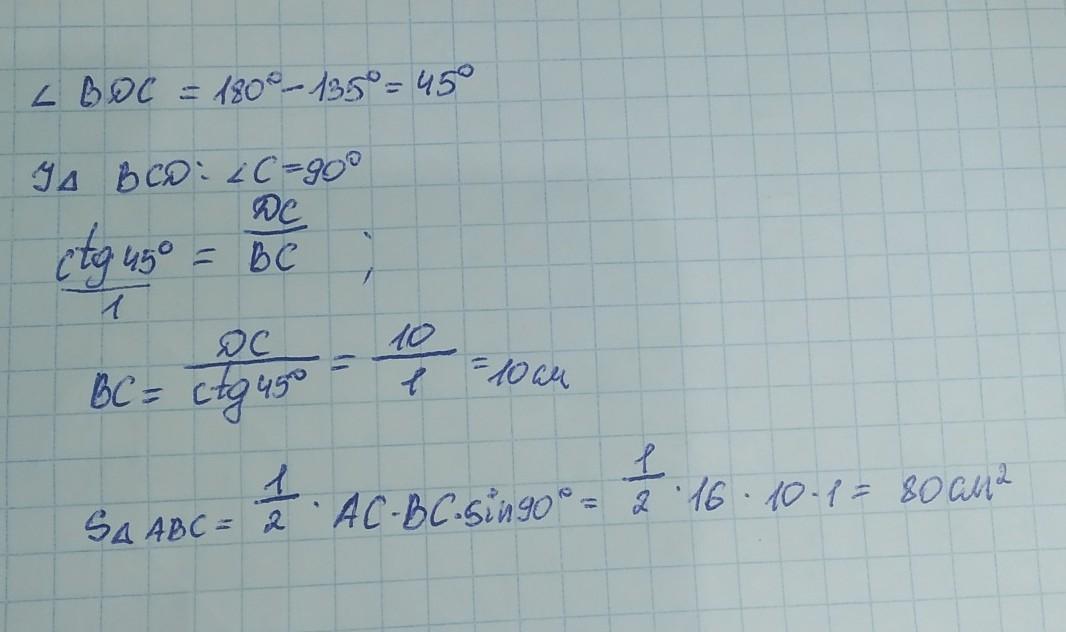 ∠ BDC = 180° - 135° = 45°
У△ BCD: ∠C = 90°
ctg 45° = DC/BC ;
1
BC = DC/ctg 45° = 10/1 = 10 см
S△ ABC = 1/2 · AC · BC · sin 90° = 1/2 · 16 · 10 · 1 = 80 см²